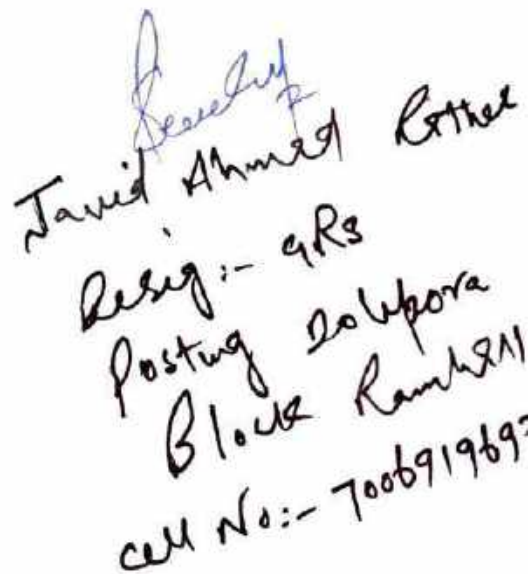 Javid Ahmed Rather
Desig:- GRS
Posting Dolipora
Block Ramhall
Cell No:- 700691969